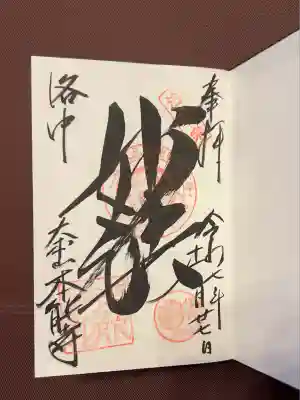 奉拝
令和七年
十一月廿七日
妙法
洛中
大本山本能寺